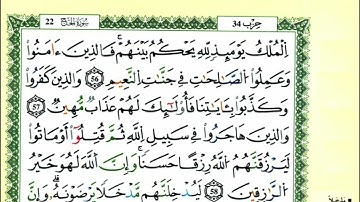 حزب 34 سورة الحج 22
اَلْمُلْكُ يَوْمَئِذٍ لِّلهِ يَحْكُمُ بَيْنَهُمْ فَالذِينَ ءَامَنُوا
وَعَمِلُوا الصَّٰلِحَٰتِ فِي جَنَّٰتِ النَّعِيمِ 56 وَالذِينَ كَفَرُوا
وَكَذَّبُوا بِـَٔايَٰتِنَا فَأُوْلَٰٓئِكَ لَهُمْ عَذَابٌ مُّهِينٌ 57
وَالذِينَ هَاجَرُوا فِي سَبِيلِ اِللَّهِ ثُمَّ قُتِلُوا أَوْ مَاتُوا
لَيَرْزُقَنَّهُمُ اُللَّهُ رِزْقاً حَسَناً وَإِنَّ اَللَّهَ لَهُوَ خَيْرُ
اُلرَّٰزِقِينَ 58 لَيُدْخِلَنَّهُم مَّدْخَلاً يَرْضَوْنَهُ وَإِنَّ